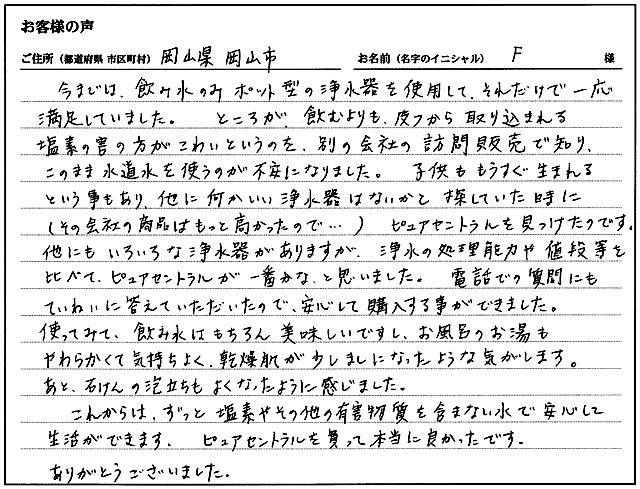 お客様の声
ご住所(都道府県 市区町村) 岡山県 岡山市 お名前(名字のイニシャル) F 様
今までは、飲み水のみ ポット型の浄水器を使用して、それだけで一応
満足していました。 ところが、飲むよりも、皮フから取り込まれる
塩素の害の方がこわいというのを、別の会社の訪問販売で知り、
このまま水道水を使うのが不安になりました。 子供ももうすぐ生まれる
という事もあり、他に何かいい浄水器はないかと探していた時に
(その会社の商品はもっと高かったので…) ピュアセントラルを見つけたのです。
他にもいろいろな浄水器がありますが、浄水の処理能力や値段等を
比べて、ピュアセントラルが一番かな、と思いました。 電話での質問にも
ていねいに答えていただいたので、安心して購入する事ができました。
使ってみて、飲み水はもちろん美味しいですし、お風呂のお湯も
やわらかくて気持ちよく、乾燥肌が少しましになったような気がします。
あと、石けんの泡立ちもよくなったように感じました。
これからは、ずっと塩素やその他の有害物質を含まない水で安心して
生活ができます。 ピュアセントラルを買って本当に良かったです。
ありがとうございました。